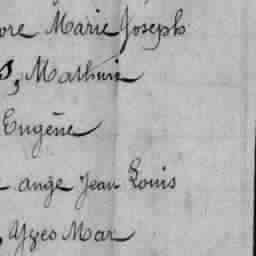 ore Marie Joseph
s, Mathurin
Eugène
ange Jean Louis
Yves Mar